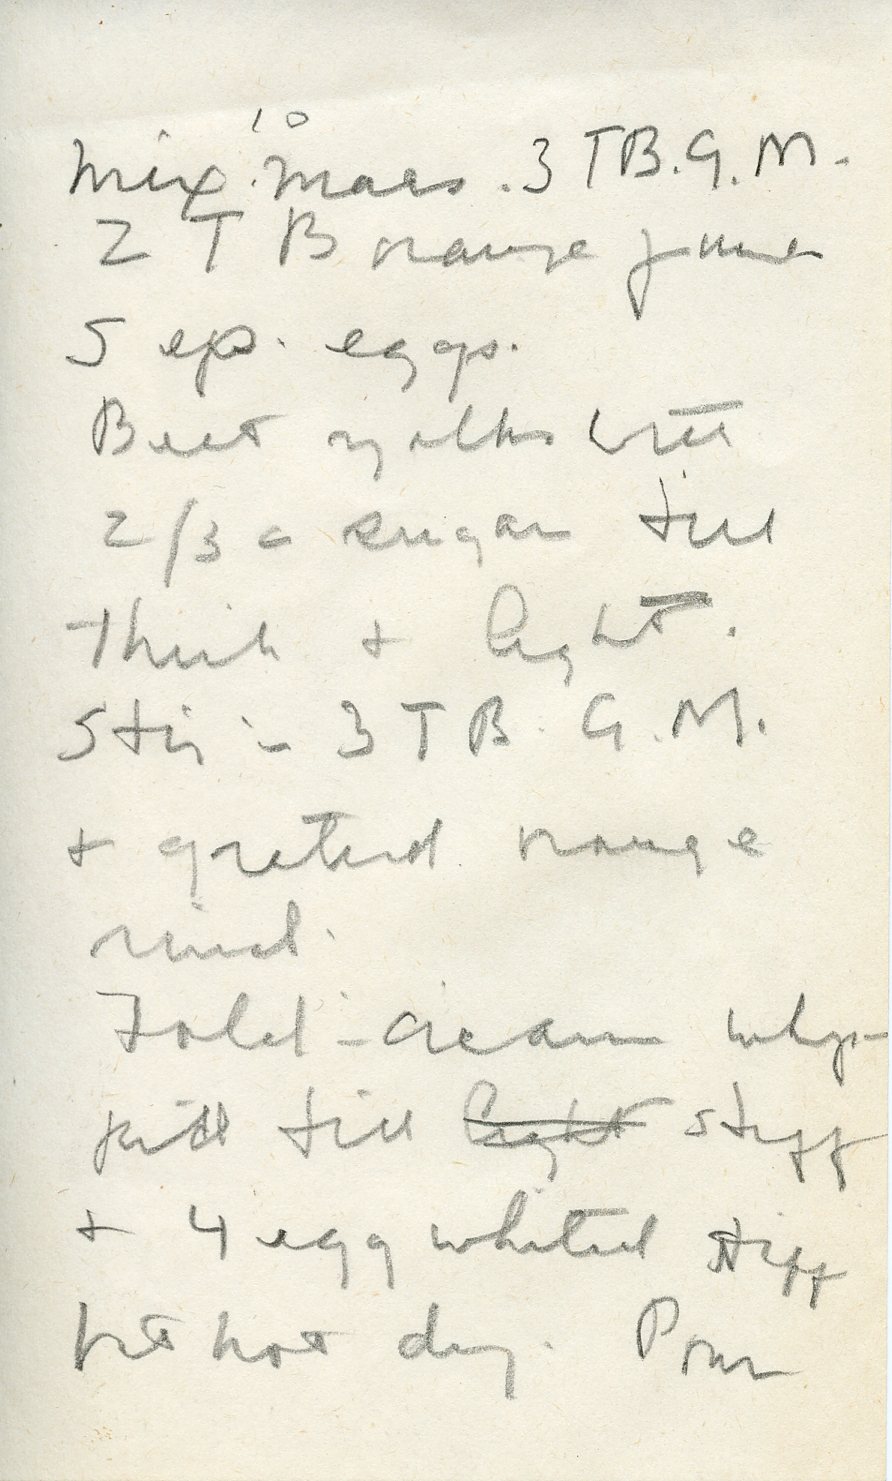 10
Mix macs. 3 TB. G. M.
2 T B orange juice
5 eggs.
Beat yolks with
2/3 c sugar till
thick + light.
Stir - 3 T B. G. M.
+ grated orange
rind.
Fold - cream whip-
till light stiff
+ 4 egg whites stiff
but not dry. Pour